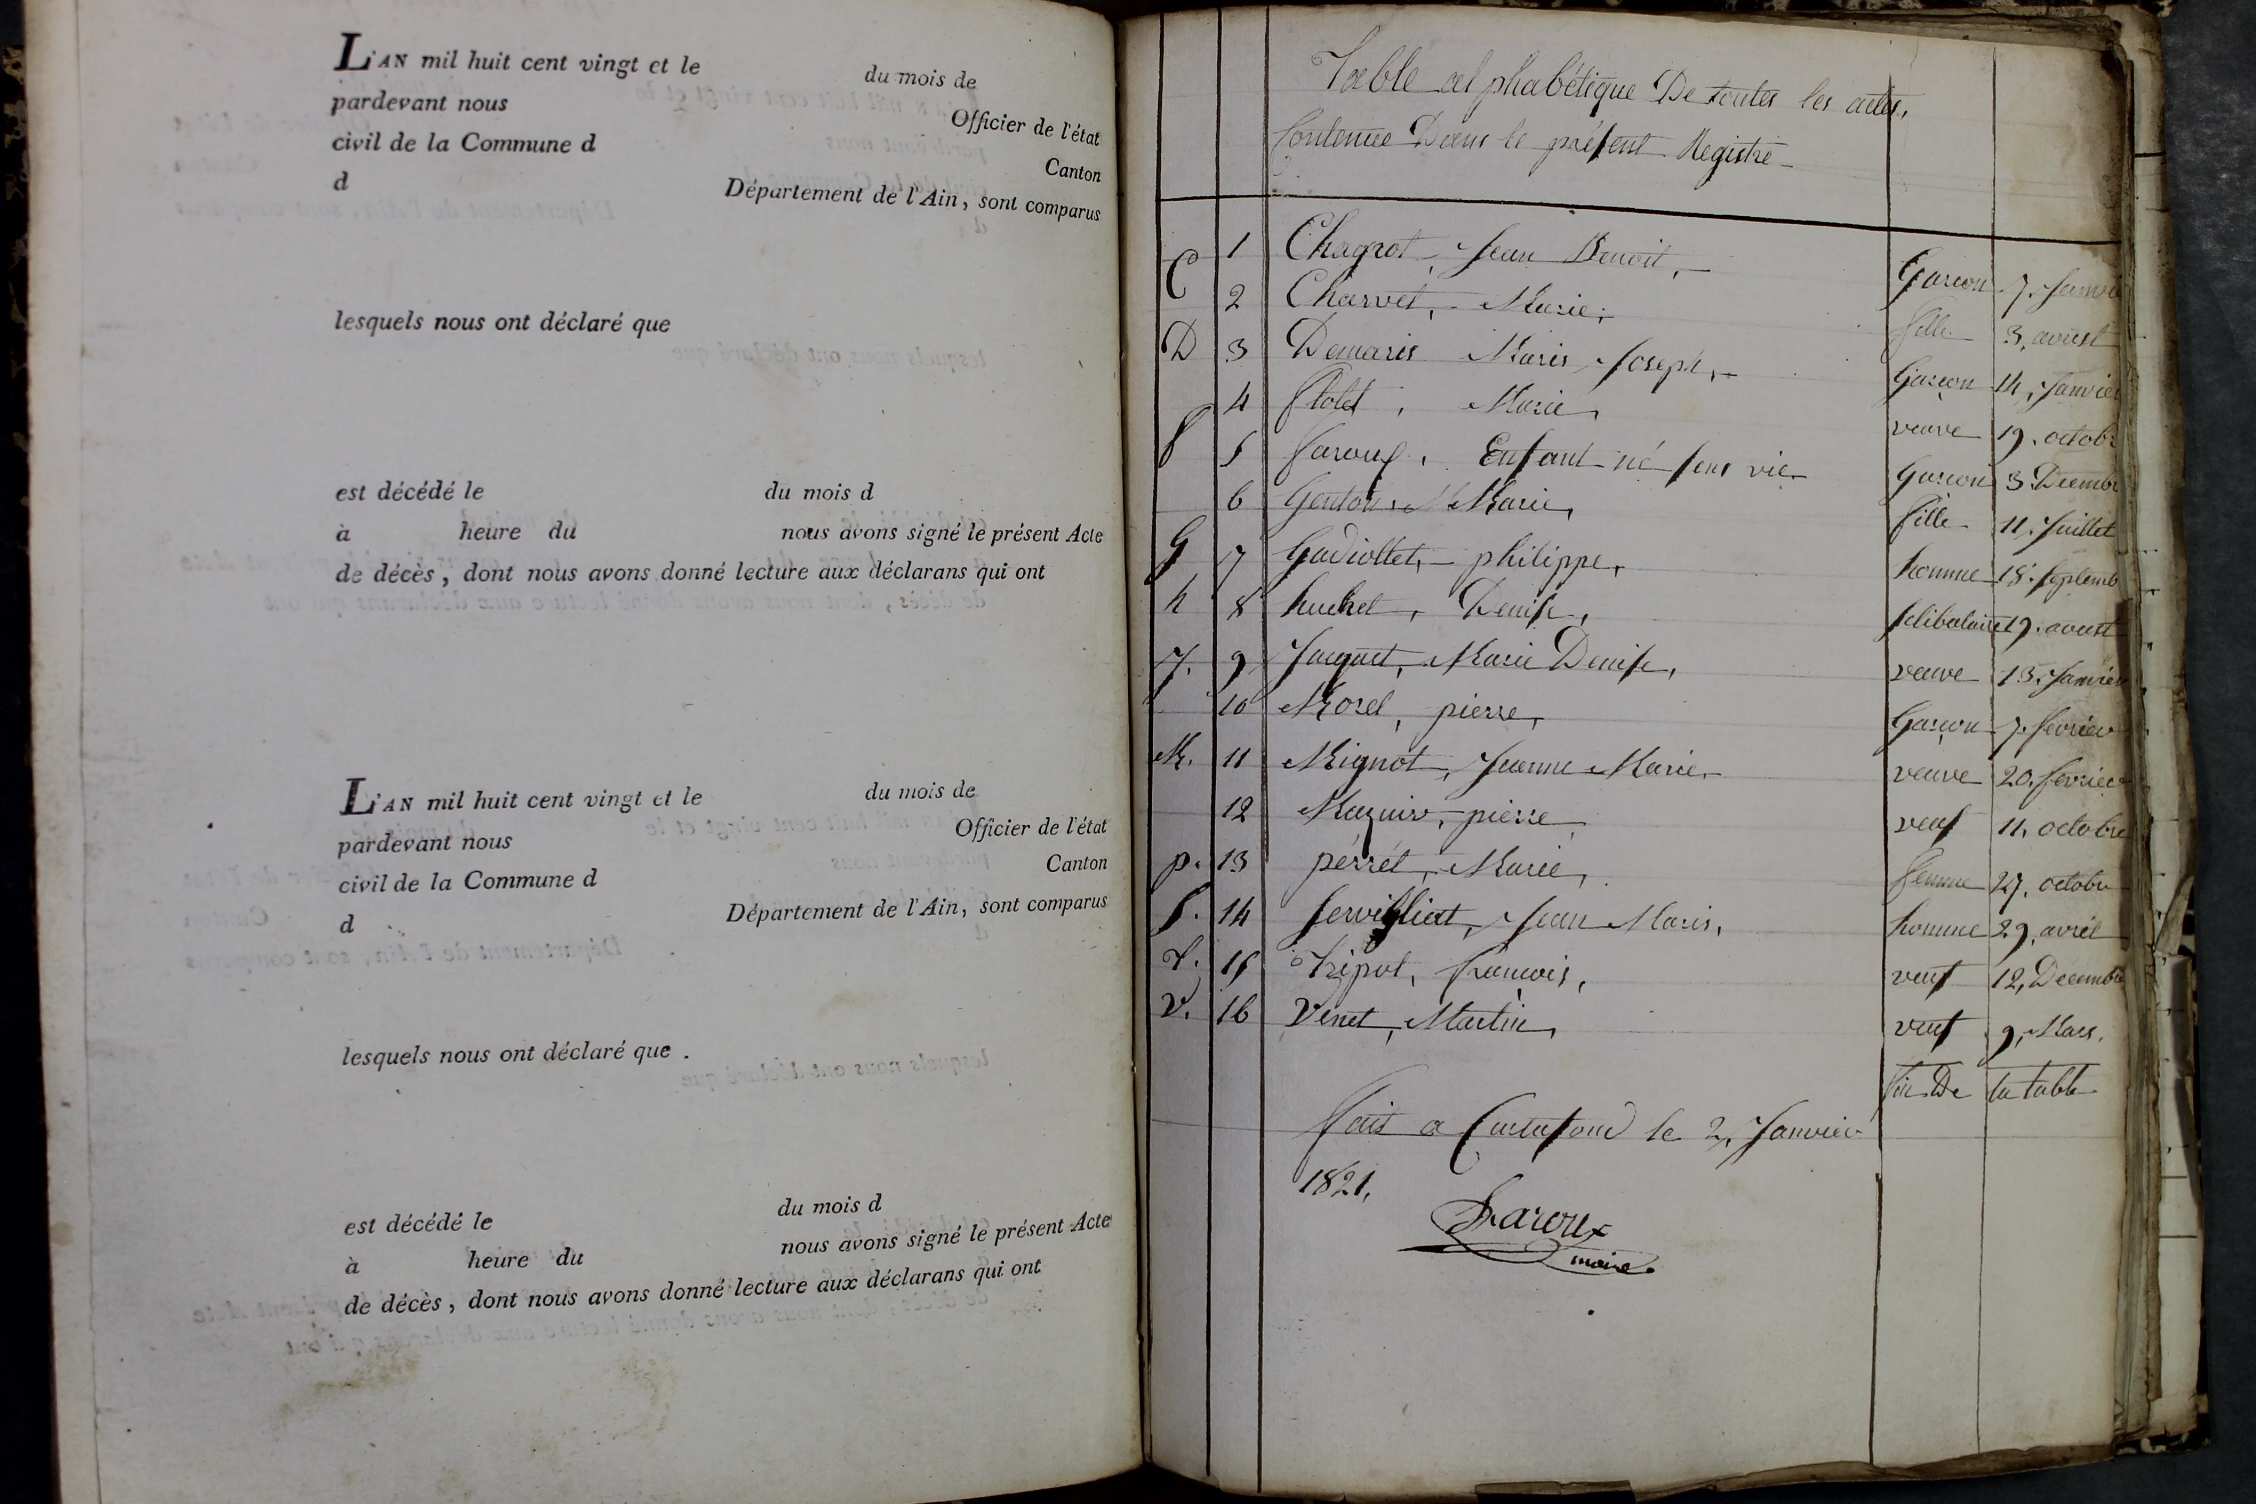 L'AN mil huit cent vingt et le du mois de
pardevant nous Officier de l'état
civil de la Commune d Canton
d Département de l'Ain, sont comparus
lesquels nous ont déclaré que
est décédé le du mois d
à heure du nous avons signé le présent Acte
de décès, dont nous avons donné lecture aux déclarans qui ont
L'AN mil huit cent vingt et le du mois de
pardevant nous Officier de l'état
civil de la Commune d Canton
d Département de l'Ain, sont comparus
lesquels nous ont déclaré que
est décédé le du mois d
à heure du nous avons signé le présent Acte
de décès, dont nous avons donné lecture aux déclarans qui ont
Table alphabétique De toutes les actes,
Contenue Dans le présent Registre
C 1 Chagrot, Jean Benoit, Garcon 7. Janvi
2 Charvet, Marie, fille 3, aoust
D 3 Demaris Maris Joseph, Garcon 14, Janvier
4 Marie, veuve 19. octobr
f 5 faroux, Enfant né sens vie Garcon 3 Decembr
6 Genton, Marie, fille 11. Juillet
G 7 Gadiollet, philippe, homme 18. septemb
h 8 huchet, Denise, selibataire 19. aoust
J. 9 Jacquet, Marie Denise, veuve 13. Janvier
10 Morel, pierre, Garçon 7. fevrier
M. 11 Mignot, Jeanne Marie, veuve 20. fevrier
12 pierre, veuf 11, octobre
p. 13 perret, Marie, femme 27, octobre
S. 14 servilliat, Jean Maris, homme 29, avril
T. 15 Tripot, francois, veuf 12, Decembre
V. 16 Venet, Martin, veuf 9, Mars.
fin De la table
fait a Curtafond le 2, Janvier
1821,
Faroux
maire.